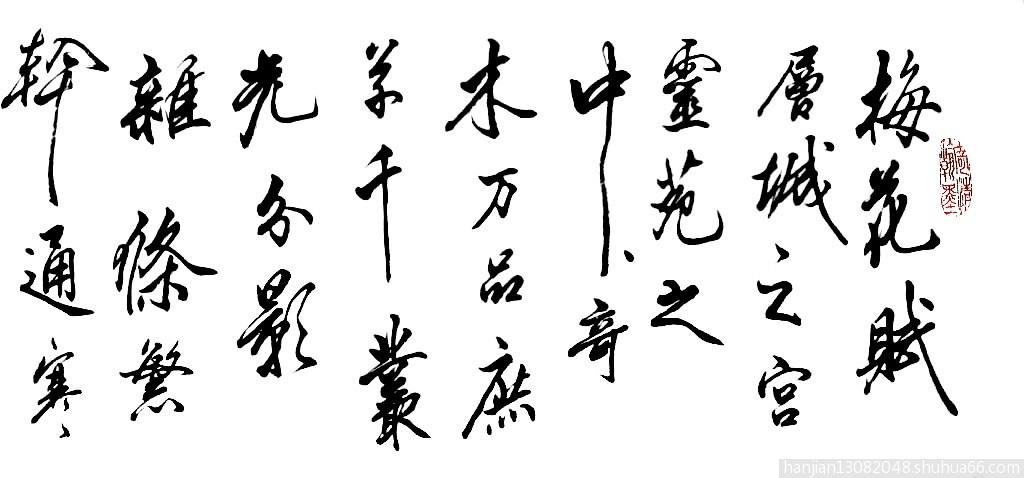 梅花賦
層城之宮
靈苑之
中、奇
木万品庶
草千叢
光分影
雜條繁
幹通寒
hanjian13082048.shuhua66.com